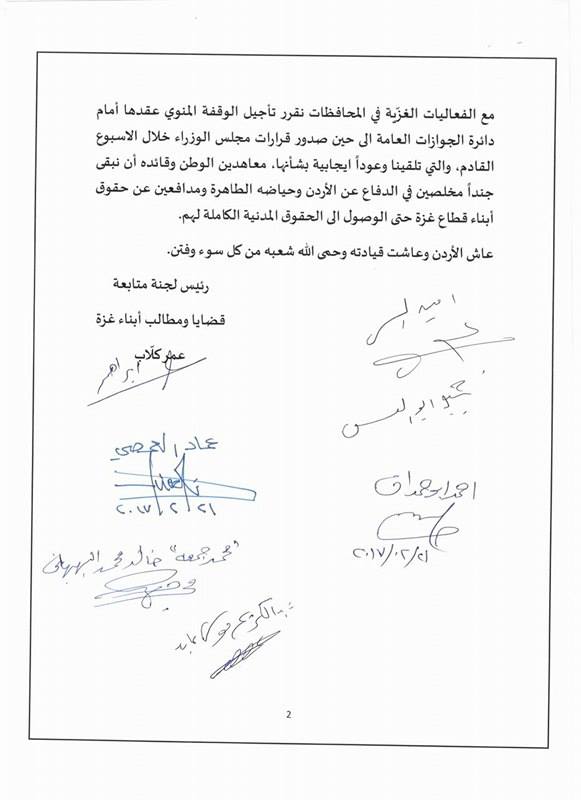 مع الفعاليات الغزّية في المحافظات نقرر تأجيل الوقفة المنوي عقدها أمام
دائرة الجوازات العامة الى حين صدور قرارات مجلس الوزراء خلال الاسبوع
القادم، والتي تلقينا وعوداً ايجابية بشأنها. معاهدين الوطن وقائده أن نبقى
جنداً مخلصين في الدفاع عن الأردن وحياضه الطاهرة ومدافعين عن حقوق
أبناء قطاع غزة حتى الوصول الى الحقوق المدنية الكاملة لهم.
عاش الأردن وعاشت قيادته وحمى الله شعبه من كل سوء وفتن.
رئيس لجنة متابعة
قضايا ومطالب أبناء غزة
عمر كلّاب
ابراهيم
عماد
٢٠١٧/٢/٢١
احمد ابو حمداق
٢٠١٧/٠٢/٢١
"محمد جمعه" خالد محمد
عبد الكريم
2